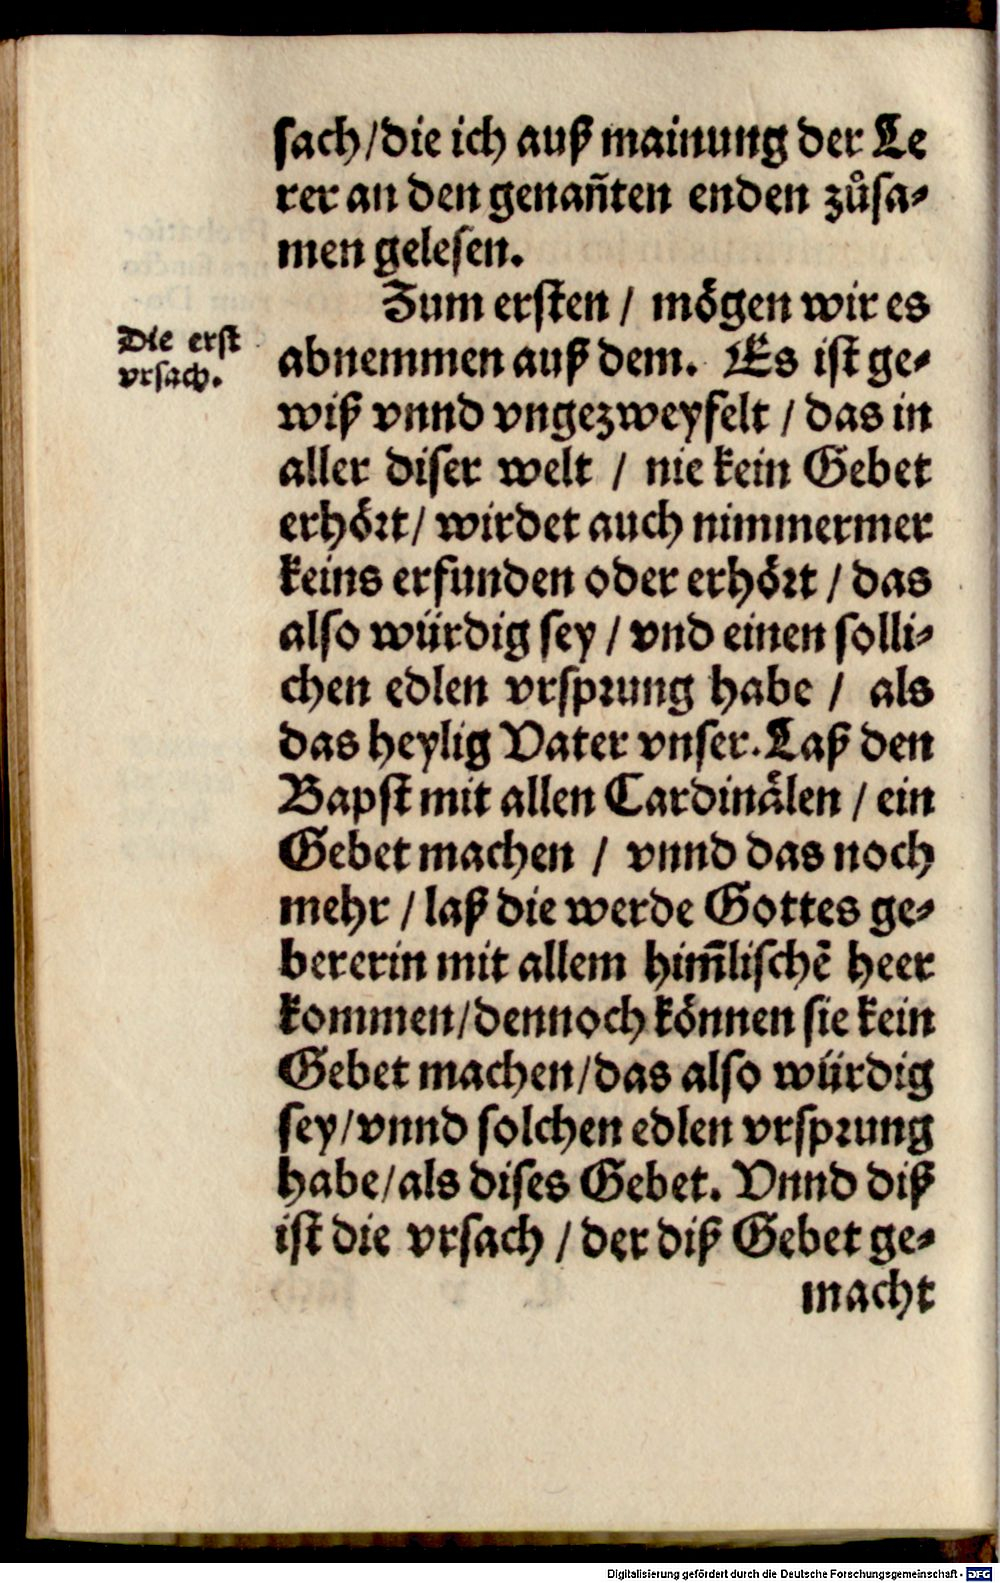 sach/die ich auß mainung der Le
rer an den genañten enden zůsa⸗
men gelesen.
Zum ersten / mögen wir es
Die erst
vrsach.
abnemmen auß dem. Es ist ge⸗
wiß vnnd vngezweyfelt / das in
aller diser welt / nie kein Gebet
erhört/ wirdet auch nimmermer
keins erfunden oder erhört / das
also würdig sey / vnd einen solli⸗
chen edlen vrsprung habe / als
das heylig Vater vnser. Laß den
Bapst mit allen Cardinälen / ein
Gebet machen / vnnd das noch
mehr / laß die werde Gottes ge⸗
bererin mit allem him̃lischẽ heer
kommen/dennoch können sie kein
Gebet machen/das also würdig
sey/vnnd solchen edlen vrsprung
habe/als dises Gebet. Vnnd diß
ist die vrsach / der diß Gebet ge⸗
macht
Digitalisierung gefördert durch die Deutsche Forschungsgemeinschaft - DFG